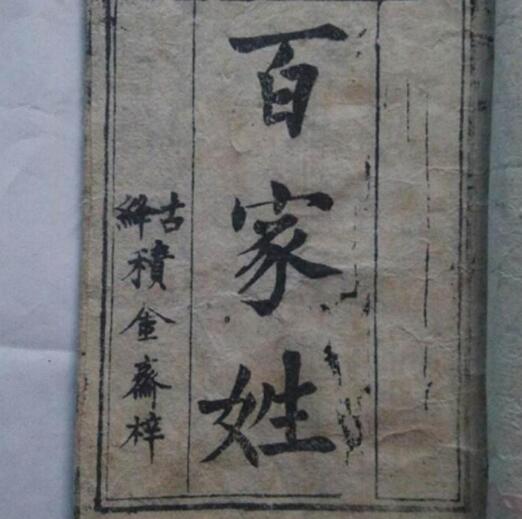 百家姓
古絳積金齋梓